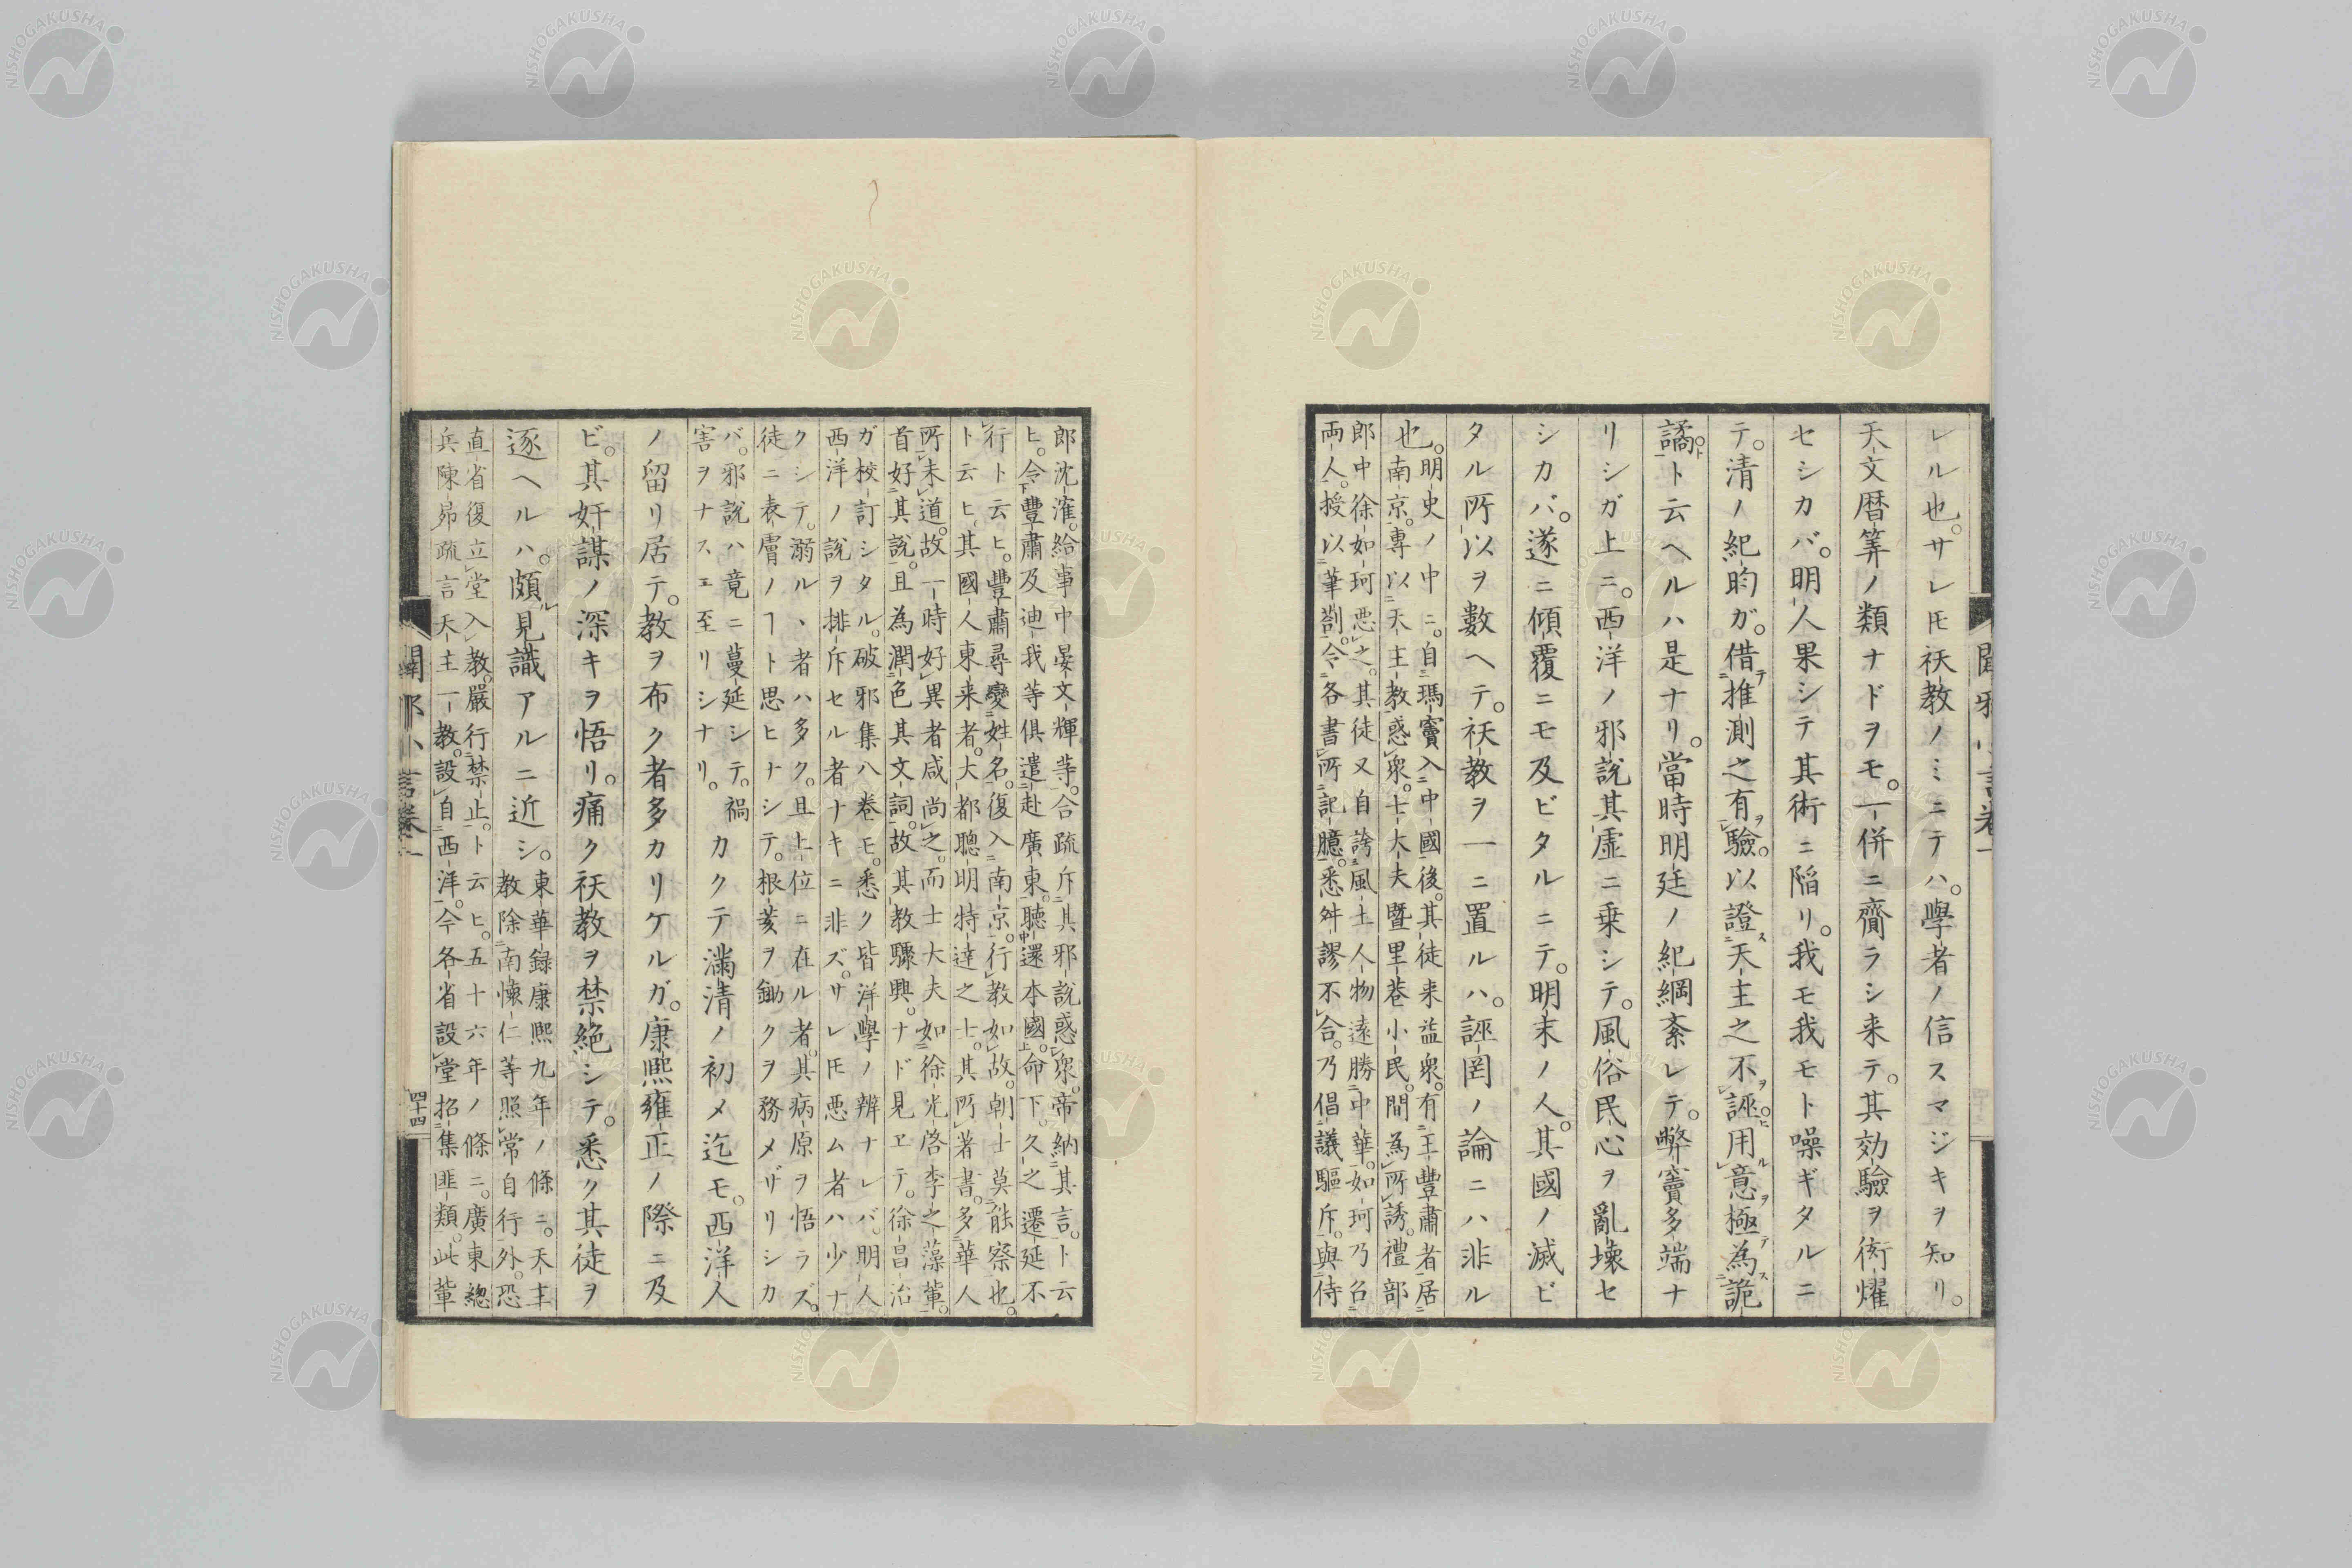 レル也。サレ𪜈祅教ノミニテハ。學者ノ信スマジキヲ知リ。
天文暦筭ノ類ナドヲモ。一併ニ齎ラシ来テ。其効驗ヲ衒燿
セシカバ。明人果シテ其術ニ陥リ。我モ我モト噪ギタルニ
テ。清ノ紀昀ガ。借テ推測之有ヲ驗。以證ス天主之不ヲ誣ヒ。用ルヲ意極テ為ス詭
譎ト。ト云ヘルハ是ナリ。當時明廷ノ紀綱紊レテ。弊竇多端ナ
リシガ上ニ。西洋ノ邪說其虛ニ乗シテ。風俗民心ヲ亂壞セ
シカバ。遂ニ傾覆ニモ及ビタルニテ。明末ノ人。其國ノ滅ビ
タル所以ヲ數ヘテ。祅教ヲ一ニ置ルハ。誣罔ノ論ニハ非ル
也。明史ノ中ニ。自瑪竇入中國後。其徒来益衆。有王豐肅者居
南京。專以天主教惑衆。士大夫暨里巷小民。間為所誘。禮部
郎中徐如珂惡之。其徒又自誇風土人物遠勝中華。如珂乃召
兩人。授以筆劄。令各書所記臆。悉舛謬不合。乃倡議驅斥。與侍
郎沈㴶。給事中晏文輝等。合疏斥其邪說惑衆。帝納其言。ト云
ヒ。令豐肅及迪我等俱遣赴廣東。聽還本國。命下。久之遷延不
行ト云ヒ。豐肅尋變姓名。復入南京。行教如故。朝士莫能察也。
ト云ヒ。其國人東来者。大都聰明特達之士。其所著書。多華人
所未道。故一時好異者咸尚之。而士大夫如徐光啓李之藻輩。
首好其說。且為潤色其文詞。故其教驟興。ナド見ヱテ。徐昌治
ガ校訂シタル。破邪集八卷モ。悉ク皆洋學ノ辨ナレバ。明人
西洋ノ說ヲ排斥セル者ナキニ非ズ。サレ𪜈悪ム者ハ少ナ
クシテ。溺ルヽ者ハ多ク。且上位ニ在ル者。其病原ヲ悟ラズ。
徒ニ表膚ノヿト思ヒナシテ。根荄ヲ鋤クヲ務メザリシカ
バ。邪說ハ竟ニ蔓延シテ。禍
害ヲナスエ至リシナリ。カクテ滿清ノ初メ迄モ。西洋人
ノ留リ居テ。教ヲ布ク者多カリケルガ。康熙雍正ノ際ニ及
ビ。其奸謀ノ深キヲ悟リ。痛ク祅教ヲ禁絶シテ。悉ク其徒ヲ
逐ヘルハ。頗ル見識アルニ近シ。東華錄康熙九年ノ條ニ。天主
教除南懷仁等照常自行外。恐
直省復立堂入教。嚴行禁止。ト云ヒ。五十六年ノ條ニ。廣東總
兵陳昴疏言天主一教。設自西洋。今各省設堂招集匪類。此輩
四十四